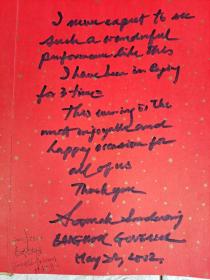 I never expect to see
such a wonderful
performance like this
I have been in
for 3 times
This evening is the
most enjoyable and
happy occasion for
all of us
Thank you
BANGKOK GOVERNOR
May 21, 2002.